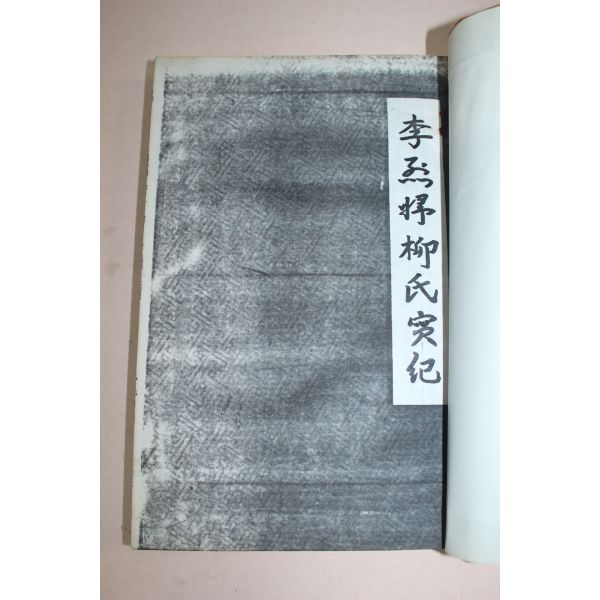 李烈婦柳氏實紀